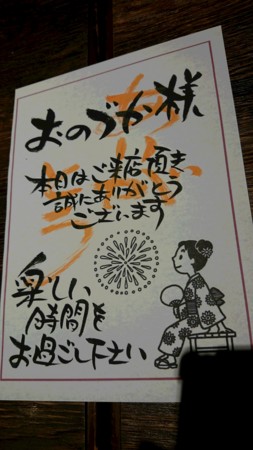 おのづか様
本日はご来店頂き
誠にありがとう
ございます
楽しい
時間を
お過ごし下さい